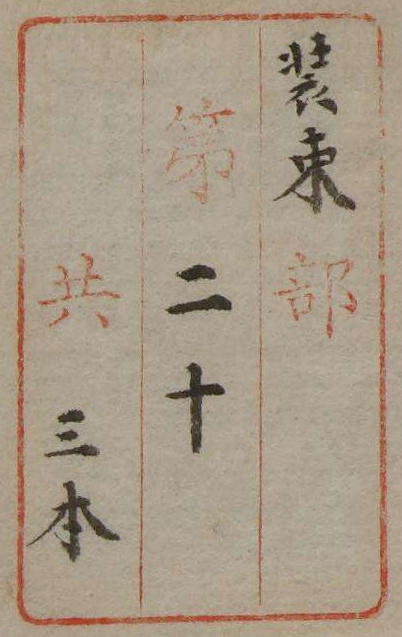 装束部
第二十
共三本